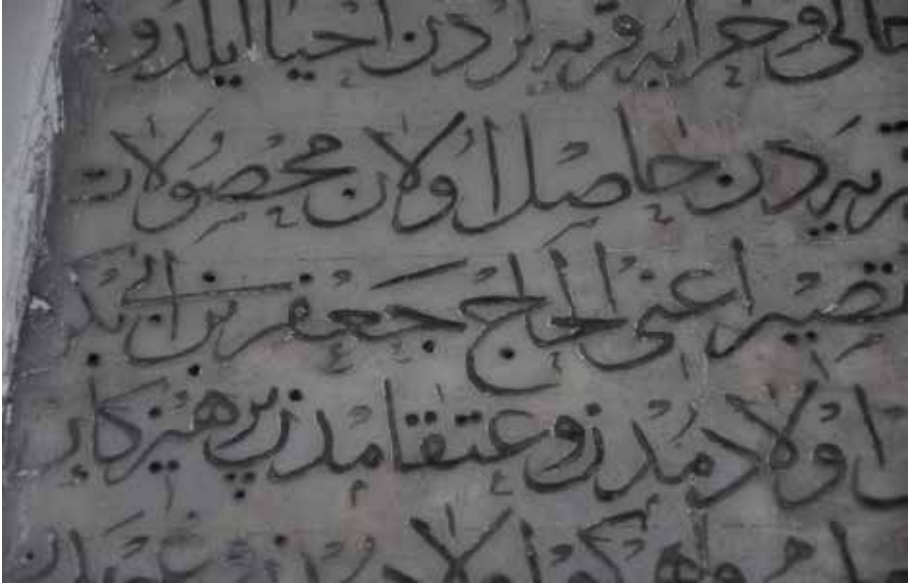 خالى و خرابه قريه لردن احيا ايلدو
قريه دن حاصل اولان محصولات
تقصير اعنى الحاج جعفر بن ابى بكر
اولادمدن و عتقامدن پرهيزكار
اولاد